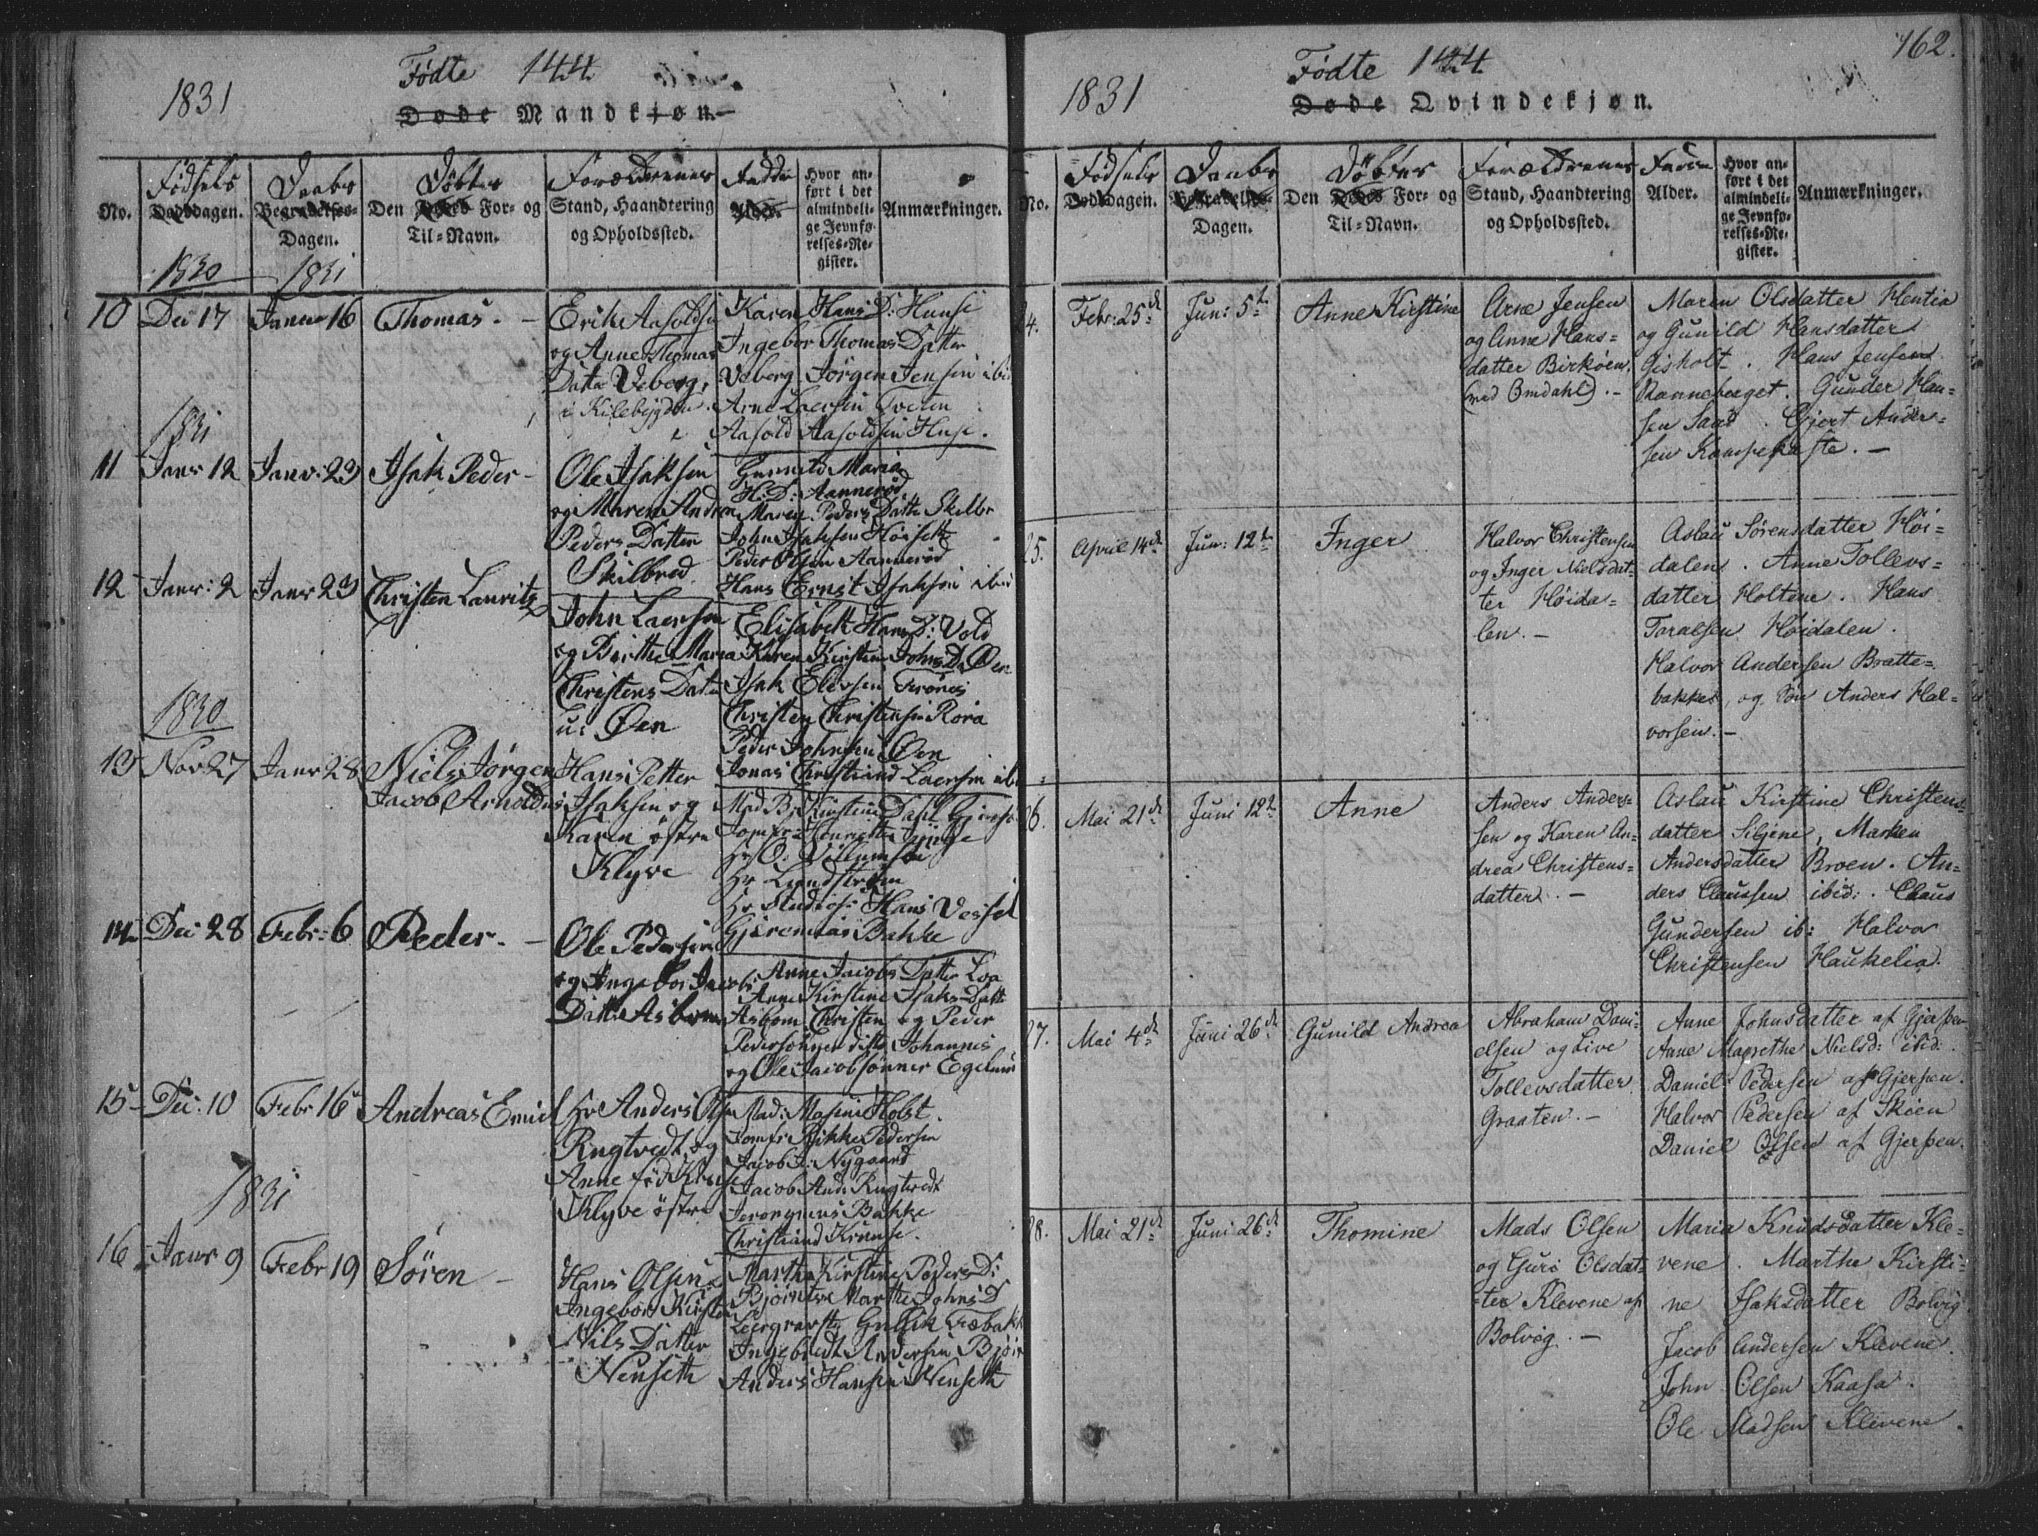 1831
Födte 144
Døde Mandkjøn.
No.
Fødsels
Dødsdagen.
Daabs
Begravelses-
Dagen.
Døbtes
Den Dødes For- og
Til-Navn.
Forældrenes
Stand, Haandtering
og Opholdssted.
Faddere
Alder.
Hvor an-
ført i det
almindeli-
ge Jevnfø-
relses-Re-
gister.
Anmærkninger.
1830 1831
10 Dec 17 Janr 16 Thomas.
Erik Aasoldsen
og Anne Thomas
Datter Veberg,
i Kilebygden.
Karen Hans D: Huuse
Ingebor Thomas Datter
Veberg Jørgen Jensen ibid
Arne Laersen Tveten
Aasold Aasoldsen Huse.
1831
11 Janr 12 Janr: 23 Isak Peder
Ole Isaksen
og Maren Andrea
Peders Datter
Skilbred
Maria
H: D: Aannerød
Maren Peders Datter Skelbr
John Isaksen Høisett
Peder Olsen Aannerød
Hans Ernst Isaksen ibid
12 Janr: 2 Janr 23 Christen Lauritz
John Laersen
og Birthe Maria
Christens Datter
Øen
Elisabeth Hans D: Vold
Karen Kirstine Johns D. Øen
Isak Elevsen Grønes
Christen Christensen Rora
Peder Johnsen Øen
Jonas Christiand Laersen ibid
1830
13 Nov 27 Janr 28 Niels Jørgen
Jacob Arnoldus
Hans Petter
Isaksen og
Karen østre
Klyve
Mad: B: Kirstine Dahl Gjerpe
Jomfr: Henriette
Hr O: Villumsen
Hr Lundstrøm
Hr Studios: Hans Vessel
Gjeremias Bakke
14 Dec 28 Febr: 6 Peder.
Ole Pedersen
og Ingebor Jacobs
Datter Asbom
Anne Jacobs Datter Loa
Anne Kirstine Isaks Datt:
Asbom, Christen og Peder
Pedersønner disto Johannes
og Ole Jacobsønner
15 Dec: 10 Febr 16 Andreas Emiel
Hr Anders Olsen
Rugtvedt og
Anne fød Kruse
Klyve østre
Mad: Masine Holst.
Jomfr: Rikke Pedersen
Jacob J: Nygaard
Jacob And: Rugtvedt
Jeronymus Bakke
Christiand Kruuse.
1831
16 Janr 9 Febr 19 Søren
Hans Olsen
Ingebor Kirstine
Nils Datter
Nenseth
Marthe Kirstine Peders D:
Bjørntve Marthe Johns D
Gullik Træbakk
Ingebredt Andersen
Anders Hansen Nenseth
162.
1831
Födte 144
Døde Qvindekjøn.
No.
Fødsels
Dødsdagen.
Daabs
Begravelses-
Dagen.
Døbtes
Den Dødes For- og
Til-Navn.
Forældrenes
Stand, Haandtering
og Opholdssted.
Faddere
Alder.
Hvor an-
ført i det
almindeli-
ge Jevnfø-
relses-Re-
gister.
Anmærkninger.
24. Febr: 25de Jun: 5te Anne Kirstine
Arne Jensen
og Anne Hans-
datter Birkøen,
(ved Omdahl).
Maren Olsdatter Hentia
og Gunild Hansdatter
Gisholt. Hans Jensen
Ranneberget. Gunder Han-
sen Saad. Gjert Ander-
sen .
25. April 14de Jun: 12te Inger
Halvor Christensen
og Inger Nielsdat-
ter Höida-
len.
Aslau Sörensdatter Höi-
dalen. Anne Tollevs-
datter Holtene. Hans
Taralsen Höidalen.
Halvor Andersen Bratte-
bakken, og Sön Anders Hal-
vorsen.
26. Mai 21de Juni 12te Anne
Anders Anders-
sen og Karen An-
drea Christens-
datter.
Aslau Kirstine Christens-
datter Siljene, Marken
Andersdatter Broen. An-
ders Claussen ibid:. Claus
Gundersen ib: Halvor
Christensen Haukelia.
27. Mai 4de Juni 26de Gunild Andrea
Abraham Dani-
elsen og Live
Tollevsdatter
Graaten.
Anne Johnsdatter af Gjerpen
Anne Magrethe Nielsd: ibid:
Daniel Pedersen af Gjerpen.
Halvor Pedersen af Skien
Daniel Olsen af Gjerpen.
28. Mai 21de Juni 26de Thomine
Mads Olsen
og Guri Olsdat-
ter Klevene af
Bolvig.
Maria Knudsdatter Kle-
vene. Marthe Kirsti-
ne Isaksdatter Bolvig
Jacob Andersen Klevene.
John Olsen Kaasa.
Ole Madsen Klevene.